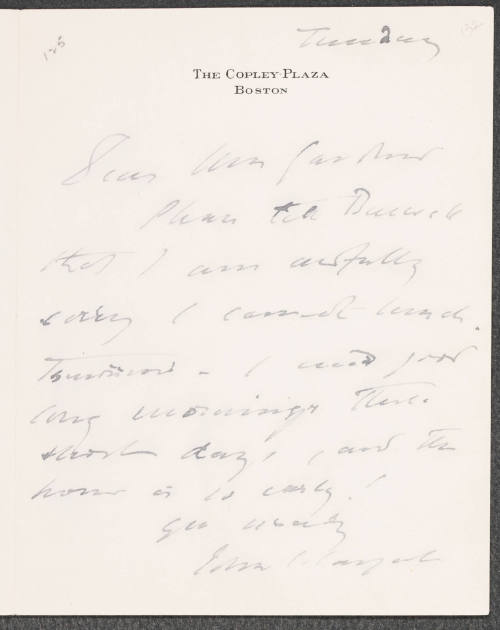 125
Tuesday
THE COPLEY-PLAZA
BOSTON
Dear Mrs Gardner
Please tell
that I am awfully
sorry I cannot lunch
Tomorrow – I need good
long mornings these
short days, and the
hour is so early!
Yrs
John S. Sargent